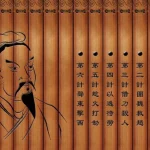 第二計圍魏救趙
第三計借刀殺人
第四計以逸待勞
第五計趁火打劫
第六計聲東擊西